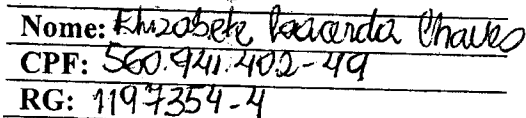 Nome: Elizabete Lacerda Chaves
CPF: 560.941.402-49
RG: 1197354-4